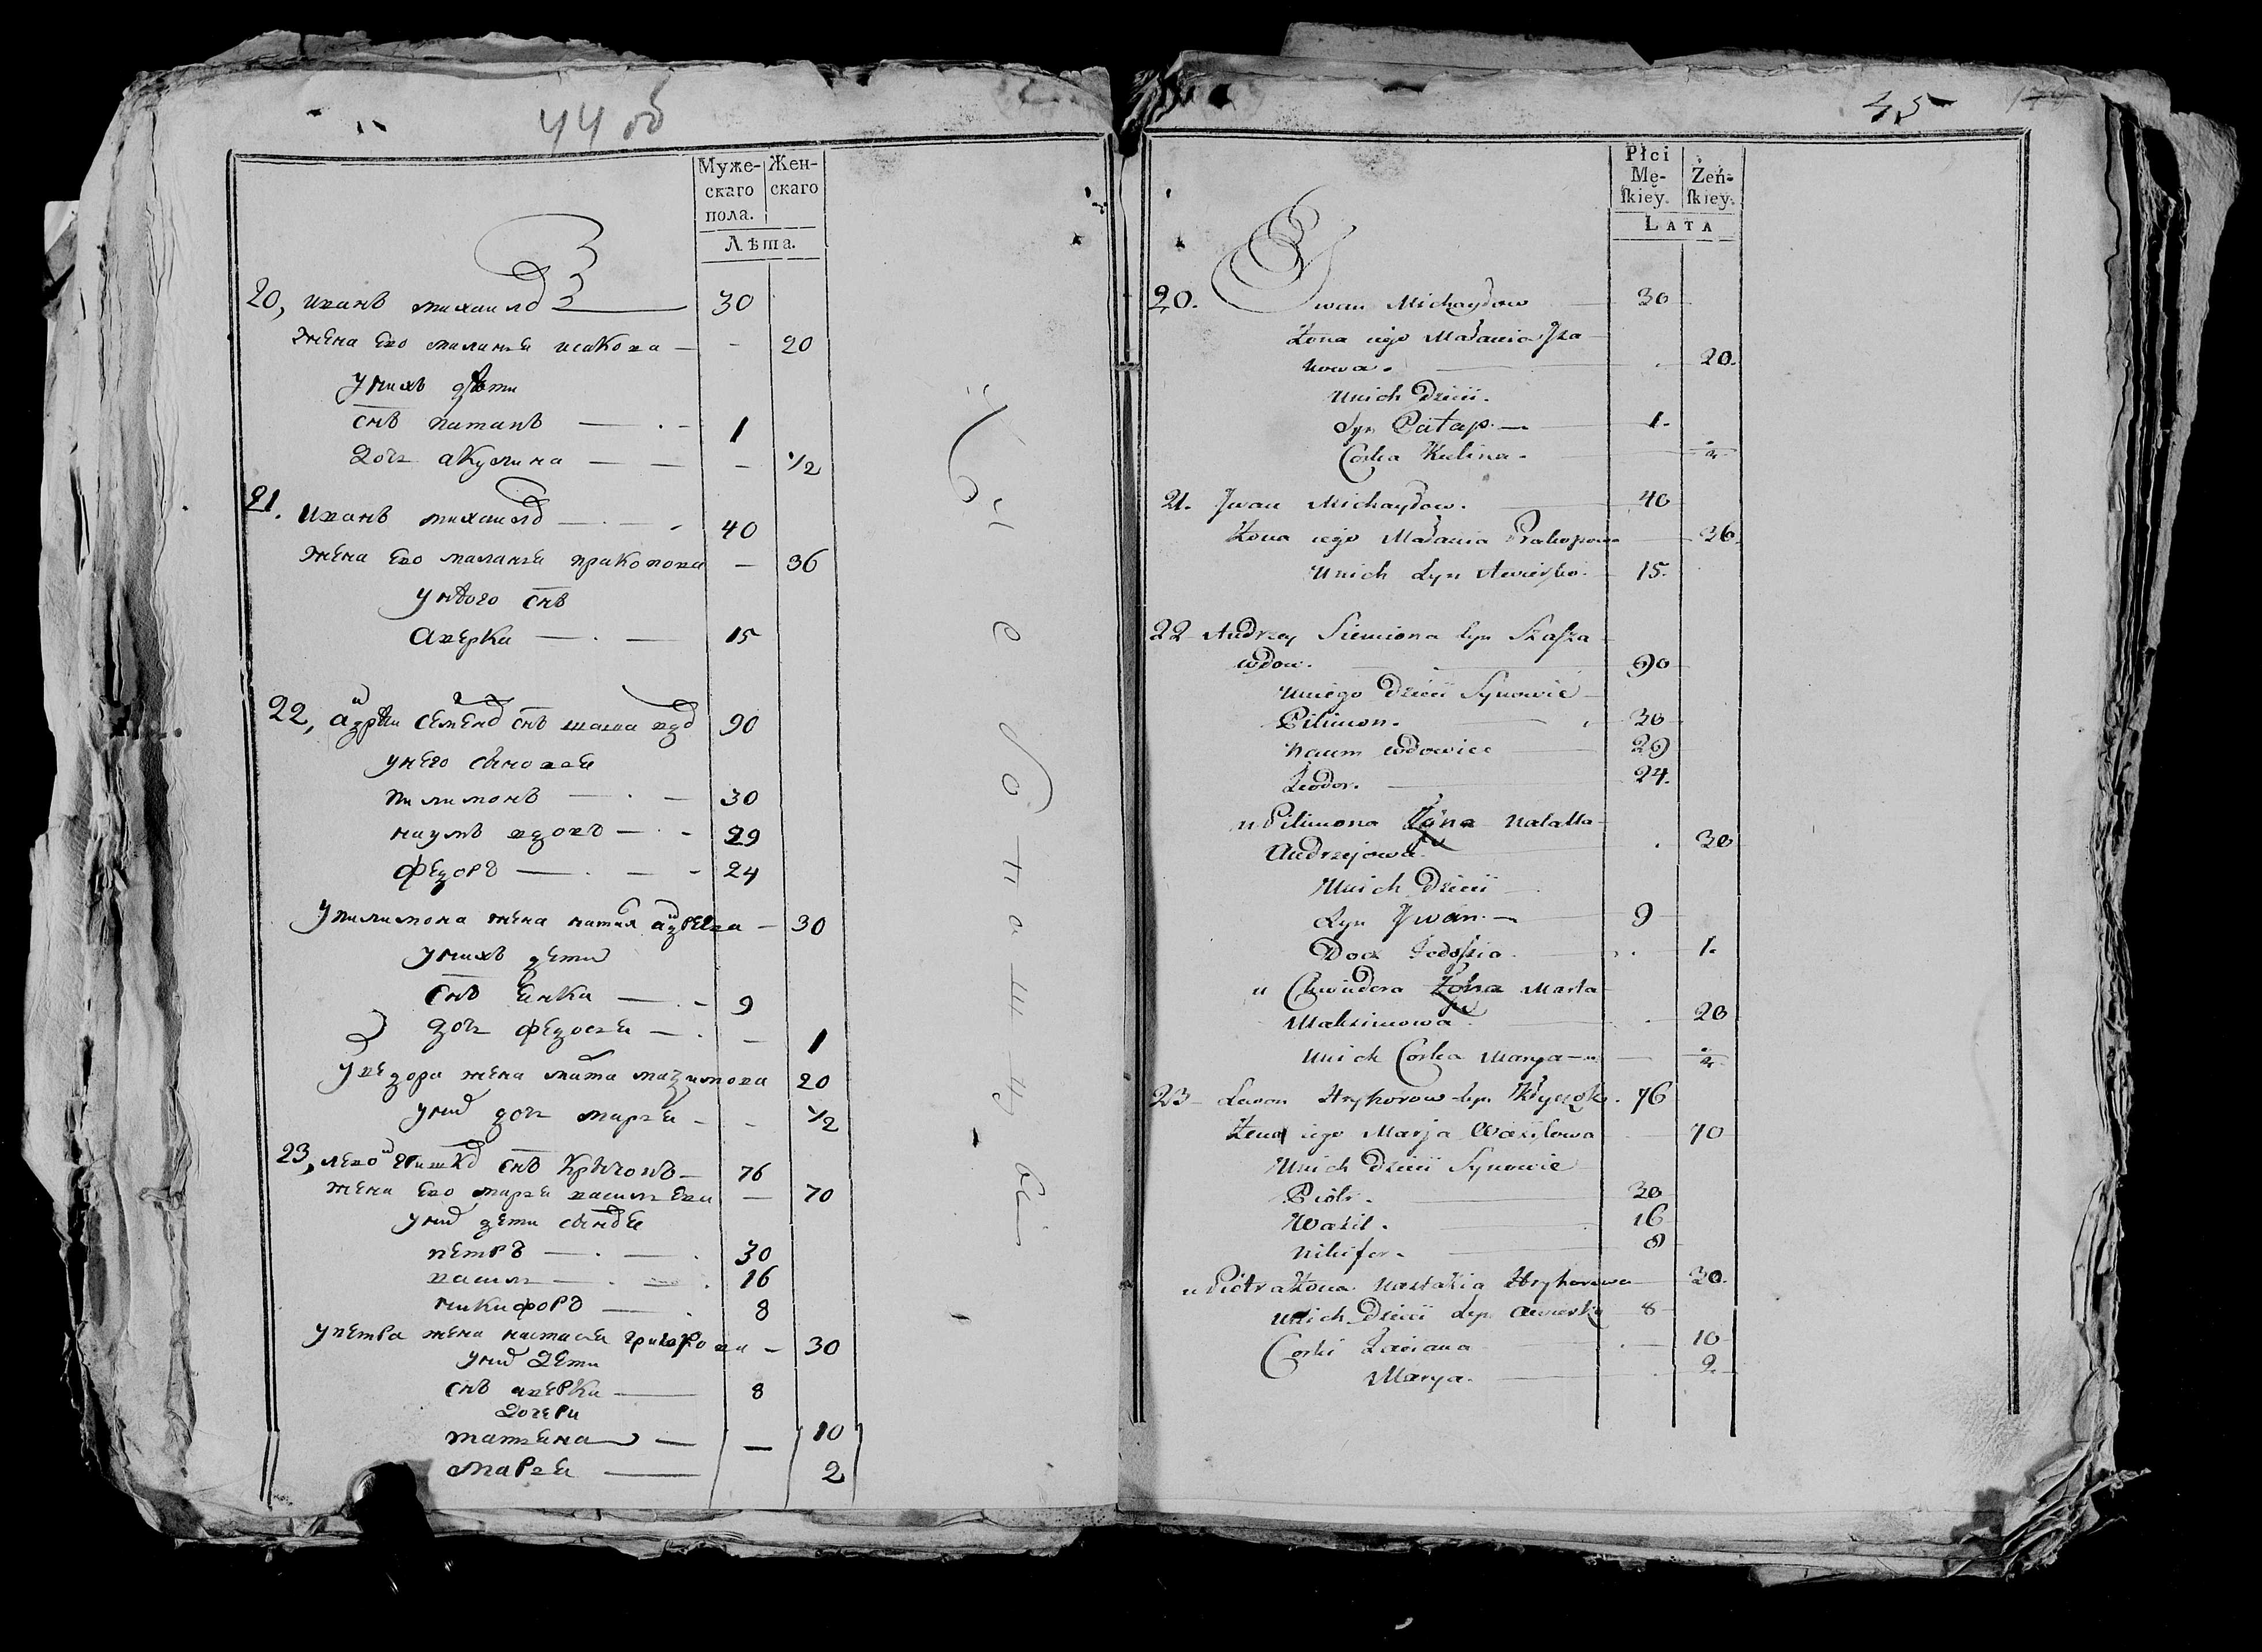 44 об
Муже-
скаго
пола.
Жен-
скаго
Лѣта.
20, иванъ михаилов 30
жена его маланья исакова — 20
у нихъ дѣти
снъ патапъ — 1
дочь акулина — — ½
21. иванъ михаилов — 40
жена его маланья пракопова — 36
у него снъ
аверка — 15
22, андрѣй семенов снъ вдов 90
у него сыновья
пилимонъ — 30
наумъ вдовъ — 29
федоръ — 24
у пилимона жена наталя андреева — 30
у нихъ дети
снъ ивка — 9
дочь федосья — 1
у хведора жена марта мазимова 20
у них дочь марья — ½
23, левон снъ — 76
жена его марья васильева — 70
у них дети сыновья
петръ — 30
василь — 16
никифоръ — 8
у петра жена настасья григорова — 30
у них дети
снъ аверка — 8
дочери
татьяна — — 10
марья — 2
45
Płci
Mę-
ſkiey.
Żeń-
ſkiey.
LATA
20. Iwan Michayłow 30
Żona iego Małania Iza
kowa. 20.
Unich Dzieci.
Syn Patap. — 1.
Corka Kulina. ½
21. Iwan Michayłow. 40
Żona iego Małania Prakopowa 36.
Unich Syn Awierko. 15.
22 Andrzey Siemiona Syn Szasza
wdow. 90
Uniego Dzieci Synowie
Pilimon. 30
Naum wdowiec 29
Fiodor. 24.
u Pilimona Żona Natalla
Andrzejowa. 30
Unich Dzieci
Syn Iwan. — 9
Docz Fedosia. 1.
u Chwiedora Żona Marta
Maksimowa. 20
Unich Corka Marya — ½
23 Lawon Hryhorow Syn 76
Żona iego Marja Wasilowa 70
Unich Dzieci Synowie
Piotr. 30
Wasil. 16
Nikifor. 8
u Piotra Żona Nastazia Hryhorowa 30.
Unich Dzieci Syn Awierko 8
Corki Taciana 10
Marya. 2